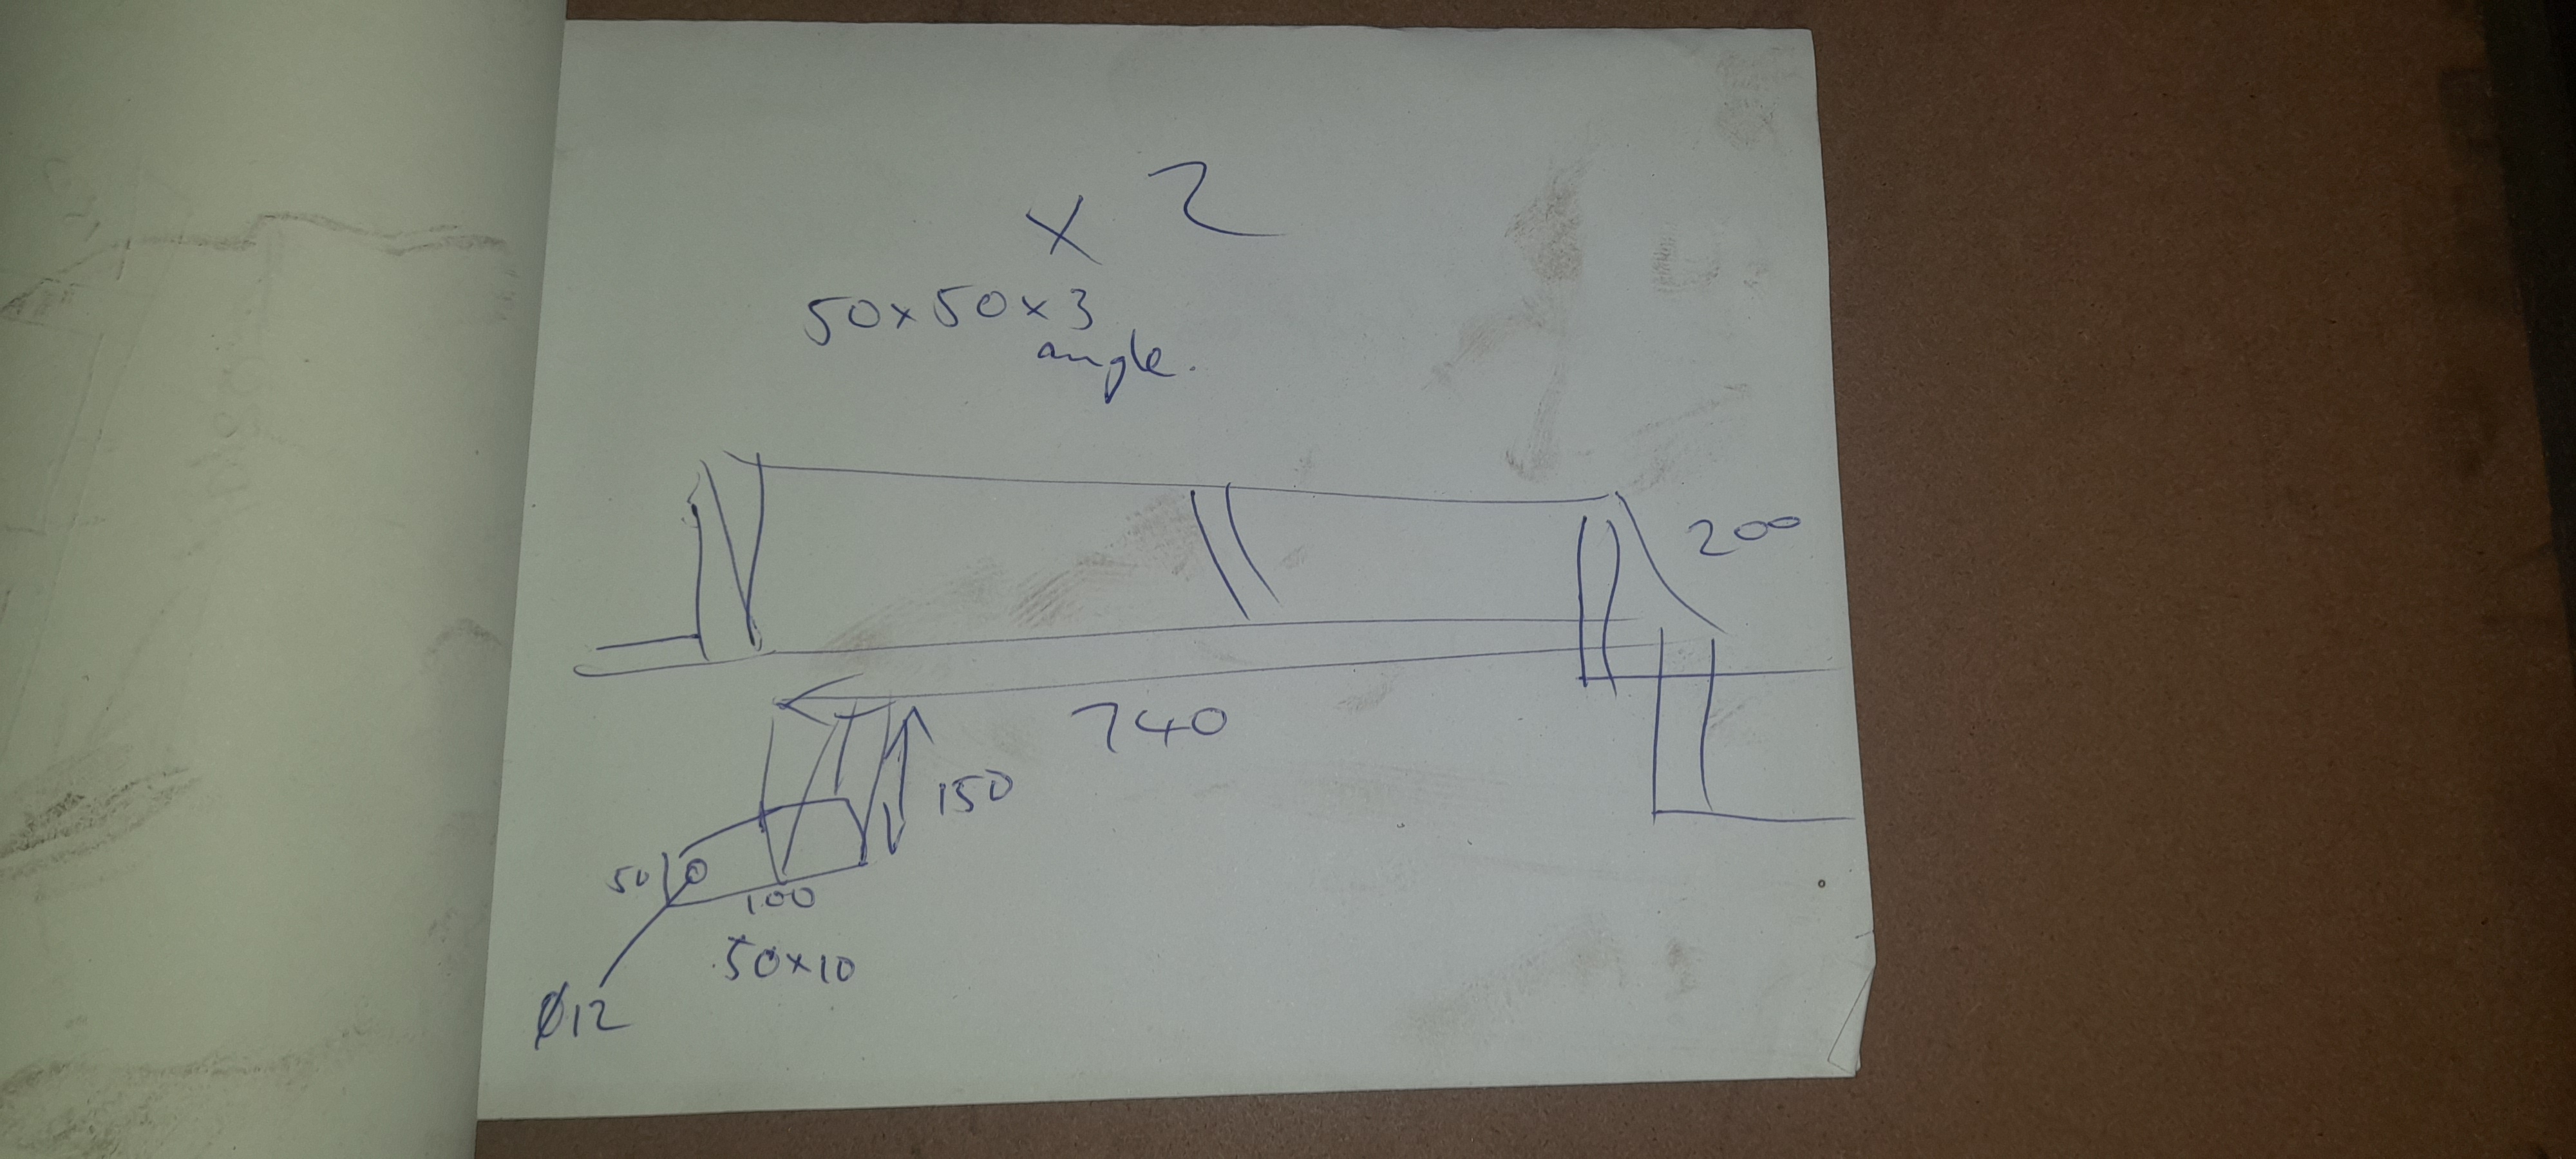 X 2
50x50x3
angle.
200
740
150
50
100
50x10
Ø12